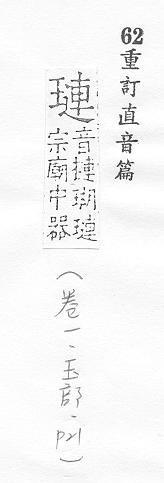 62重訂直音篇
璉音摙瑚璉
宗廟中器
(卷一.玉部.p21)